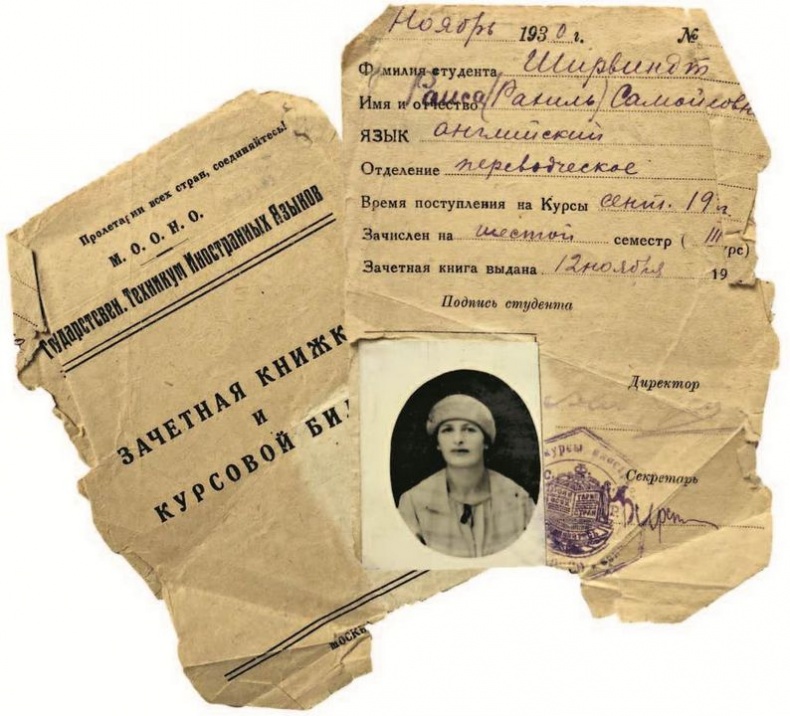 Пролетарии всех стран, соединяйтесь!
М. О. О. Н. О.
Государствен. Техникум Иностранных Языков
ЗАЧЕТНАЯ КНИЖК
и
КУРСОВОЙ БИЛ
МОСКВ
Ноябрь 1930 г. №
Фамилия студента Ширвиндт
Имя и отчество Раиса (Рахиль) Самойловн
ЯЗЫК английский
Отделение переводческое
Время поступления на Курсы сент. 19 г.
Зачислен на шестой семестр ( III урс)
Зачетная книга выдана 12 ноября 19
Подпись студента
Директор
курсы иност
Секретарь